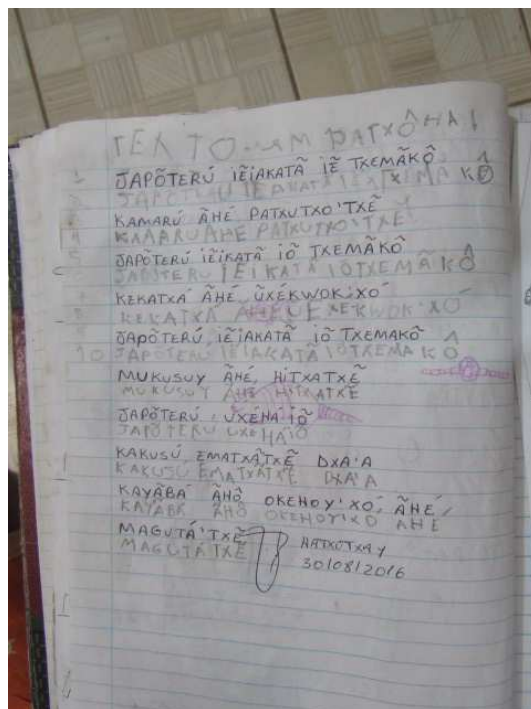 TEKTO EM PATXÔHÃ!
1 JAPÕTERÚ IẼIAKATÃ IẼ TXEMÃKÔ
2 JAPÕTERU IẼIAKATA IE TXEMA KÔ
3 KAMARÚ ÃHÉ PATXUTXO'TXẼ
4 KAMARU AHE PATXUTXO'TXẼ
5 JAPÕTERÚ IẼIKATÃ IÕ TXEMÃKÔ
JAPÕTERU IEIKATA IÕTXEMÃKÔ
KEKATXÁ ÃHÉ ŨXÉKWOK'XÓ
KEKATXA AHÉ UXEKWOK'XÓ
JAPÕTERÚ, IẼIAKATÃ IÕ TXEMAKÔ
10 JAPOTERU IEIAKATÁ IÕTXEMA KÔ
MUKUSUY ÃHÉ, HITXATXẼ
MUKUSUY ÃHE HITXATXẼ
JAPÕTERÚ, ŨXÉHA IÕ
JAPÕTERU UXEHAIÕ
KAKUSÚ, EMATXÃTXẼ DXA'A
KAKUSÚ EMATXÃTXẼ DXA'A
KAYÃBÁ ÃHÔ OKEHOY'XÓ, ÃHÉ,
KAYÃBÁ ÃHO OKEHOY'XO AHE
MAGUTÁ'TXẼ
MAGUTÁTXẼ
30/08/2016